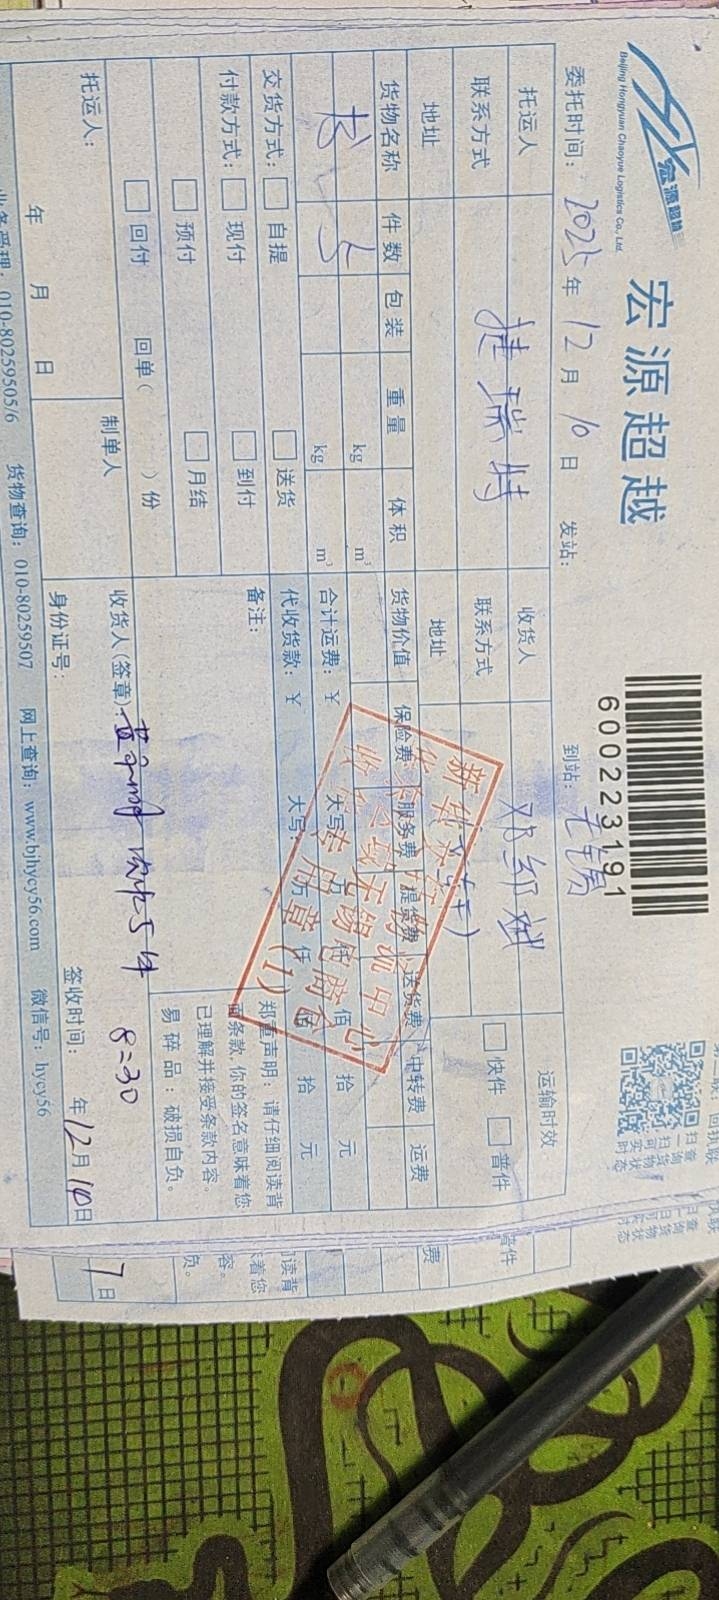 宏源超越
Beijing Hongyuan Chaoyue Logistics Co., Ltd.
宏源超越
600223191
扫一扫可实时
查询货物状态
委托时间：2025年12月10日 发站： 到站：
托运人 捷瑞特 收货人 运输时效
联系方式 联系方式 快件 普件
地址 地址
货物名称 件数 包装 重量 体积 货物价值 保险费 服务费 提货费 送货费 中转费 运费
书 5 kg m³ 合计运费：￥ 大写 万 仟 佰 拾 元
kg m³ 代收货款：￥ 大写 万 仟 佰 拾 元
交货方式： 自提 送货 备注：
付款方式： 现付 到付
预付 月结
回付 回单（ ）份
郑重声明：请仔细阅读背
面条款，你的签名意味着您
已理解并接受条款内容。
易碎品：破损自负。
托运人： 制单人 收货人（签章）：
8:30
年 月 日 身份证号： 签收时间： 年12月10日
业务受理：010-80259505/6 货物查询：010-80259507 网上查询：www.bjhycy56.com 微信号：hycy56
普件
费
阅读背
着您
容。
负。
7日